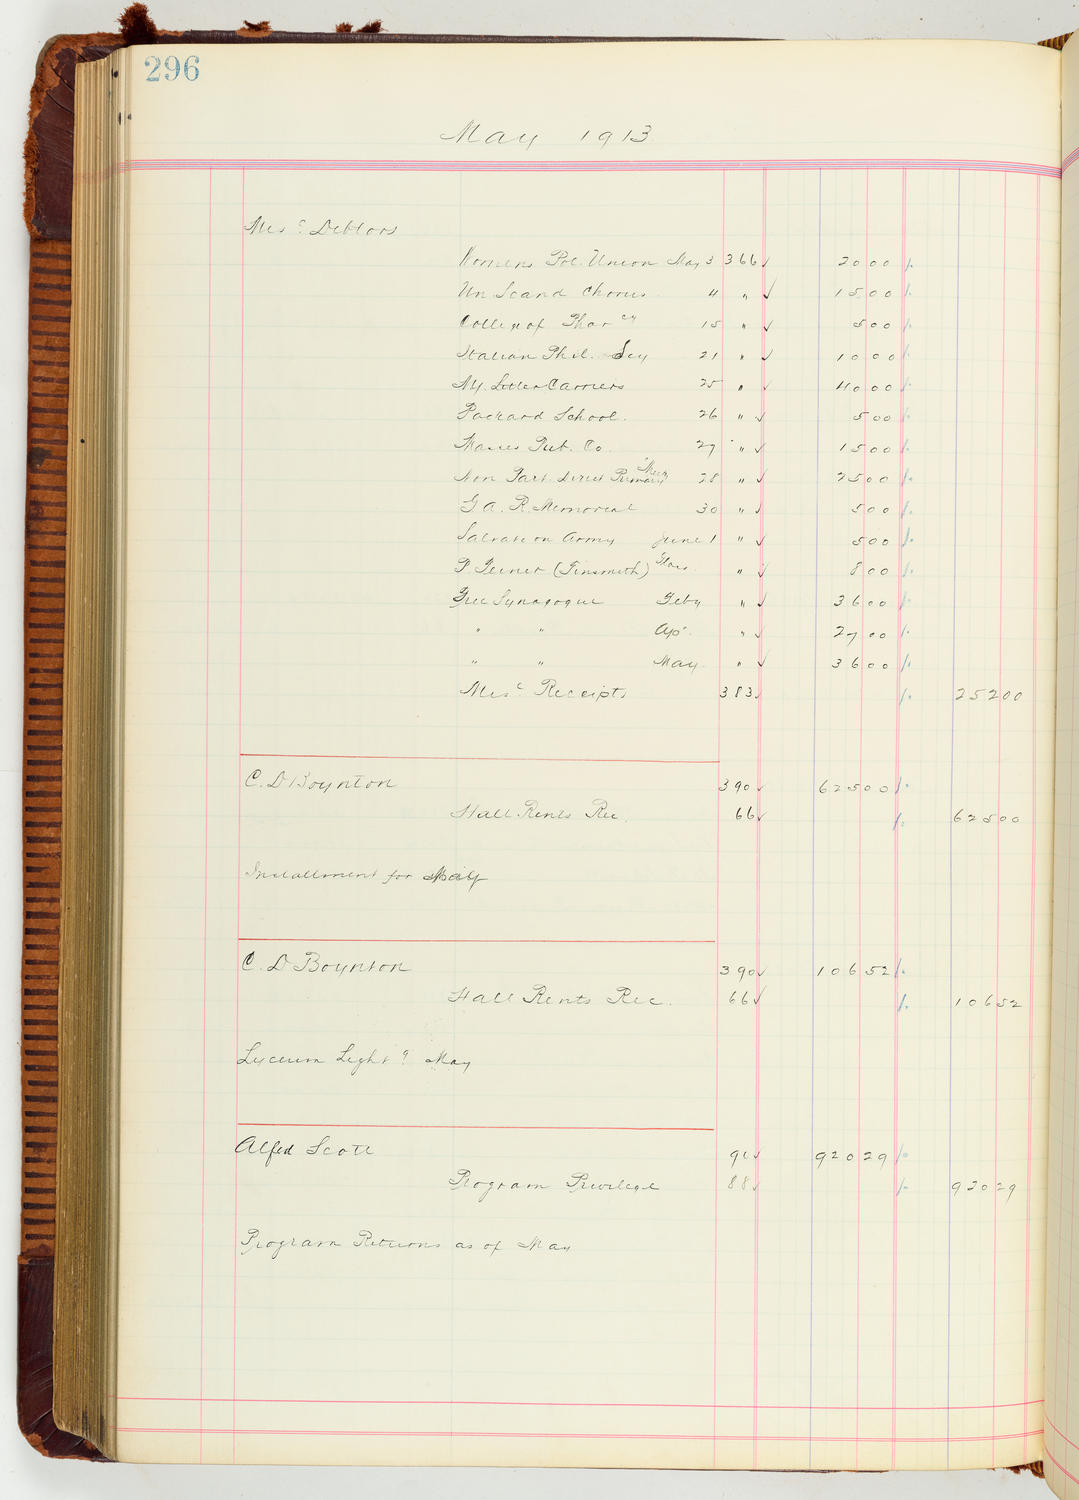 296
May 1913
Misc Debtors
Womens Pol. Union May 3 366 ✓ 20 00
Un Scand Chorus 4 " ✓ 15 00
College of Pharcy 15 " ✓ 5 00
Italian Phil. Scy 21 " ✓ 10 00
NY. Letter Carriers 25 " ✓ 40 00
Packard School. 26 " ✓ 5 00
Pub. Co. 27 " ✓ 15 00
Non Part. Direct Primary Meeg 28 " ✓ 25 00
G. A. R. Memorial 30 " ✓ 5 00
Salvation Army June 1 " ✓ 5 00
(Tinsmith) " ✓ 8 00
Free Synagogue Feby " ✓ 36 00
" " Apr. " ✓ 27 00
" " May " ✓ 36 00
Misc Receipts 383 ✓ 252 00
C. D Boynton 390 ✓ 625 00
Hall Rents Rec. 66 ✓ 625 00
Installment for May
C. D Boynton 390 ✓ 106 52
Hall Rents Rec. 66 ✓ 106 52
Lyceum Light g May
Alfed Scott 91 ✓ 920 29
Program Privilege 88 ✓ 920 29
Program Returns as of May